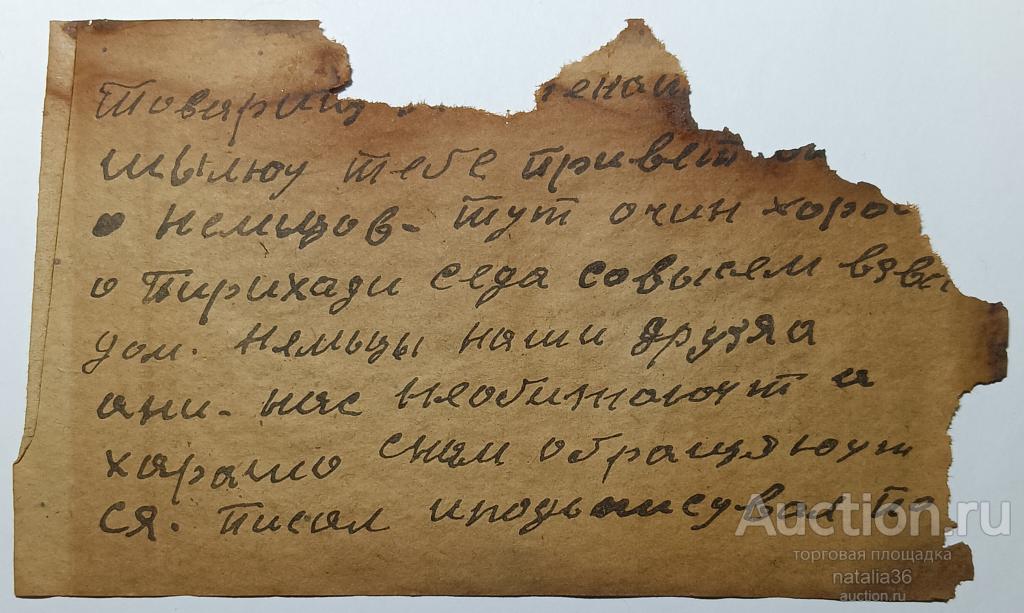 Товарищ енаи
шылюу тебе привет
о Немьцов- тут очин харо
о Пирихади седа совысем вяв
дом. Немьцы наши друзя а
ани- нас необижаюут а
харашо снам обращяюут
ся. писал иподьписувал По
Auction.ru
торговая площадка
natalia36
auction.ru